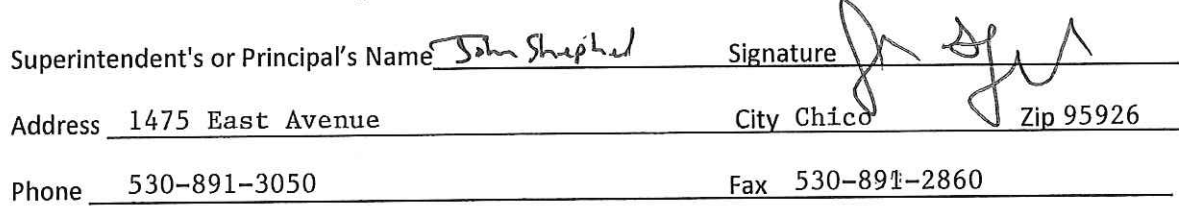 Superintendent's or Principal's Name John Shephed Signature
Address 1475 East Avenue City Chico Zip 95926
Phone 530-891-3050 Fax 530-891-2860